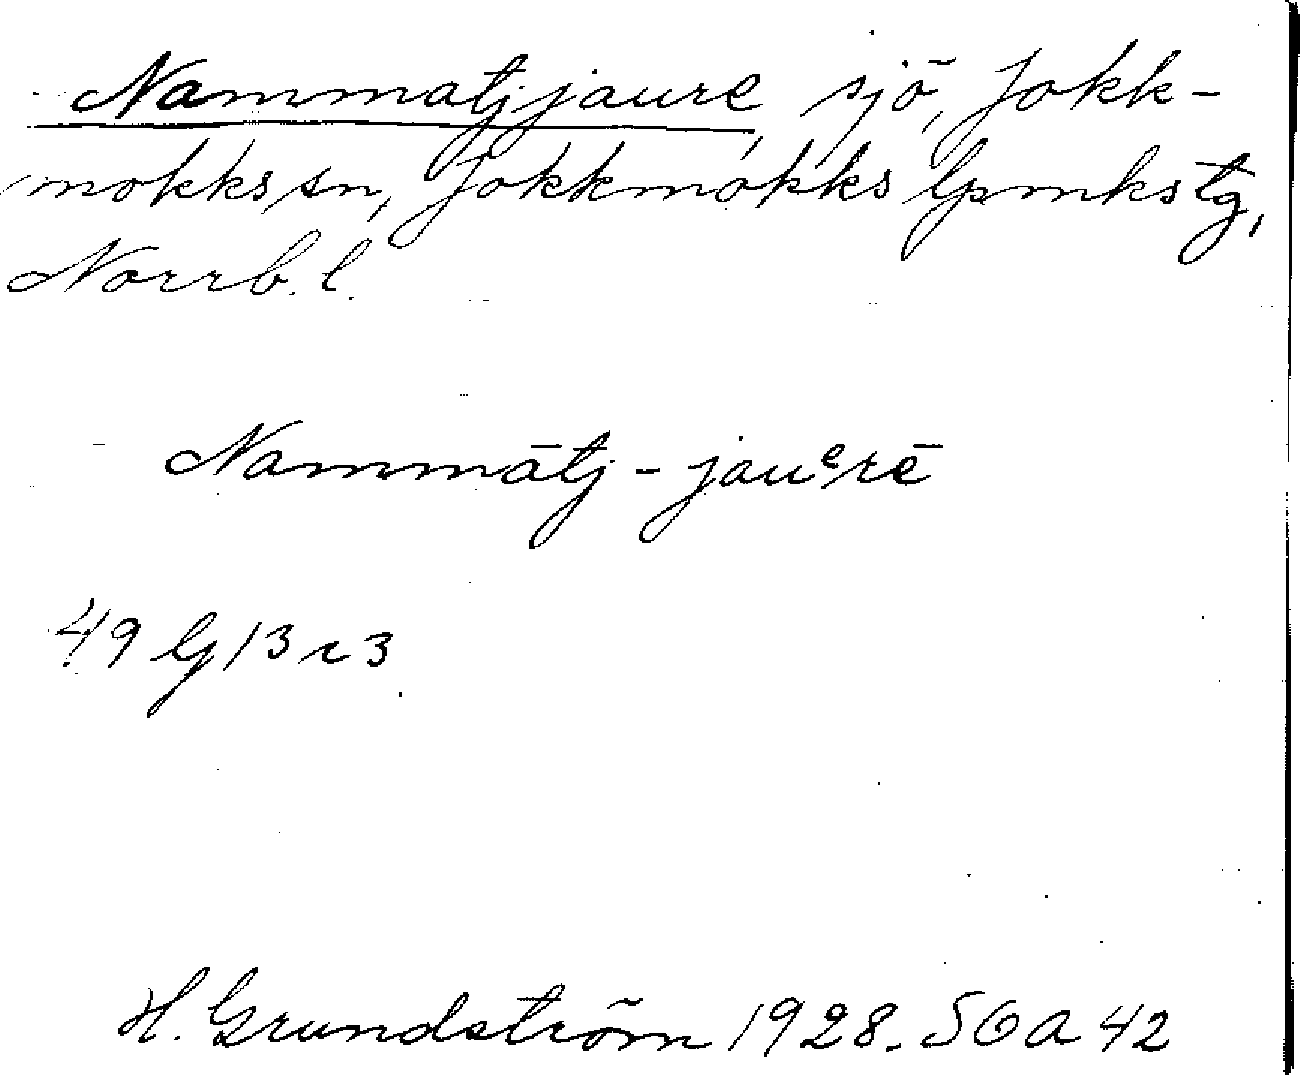 Nammatjjaure, sjö, Jokk-
mokks sn, Jokkmokks lpmkstg,
Norrb. l.
Nammātj-jauᵉrē
49 G 13 r 3
H. Grundström 1928. SOA 42